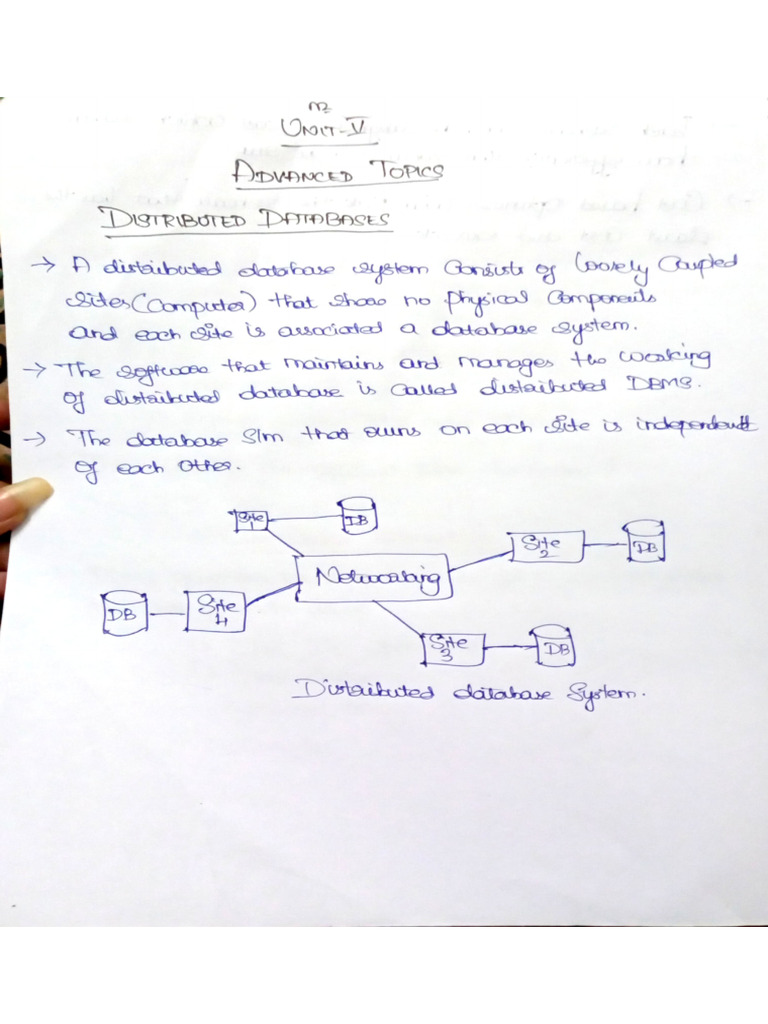 UNIT-V
ADVANCED TOPICS
DISTRIBUTED DATABASES
→ A distributed database system consists of loosely coupled
sites (computer) that share no physical components
and each site is associated a database system.
→ The software that maintains and manages the working
of distributed database is called distributed DBMS.
→ The database s/m that runs on each site is independent
of each other.
Site 1
DB
Site 2
DB
Networking
DB
Site 4
Site 3
DB
Distributed database System.